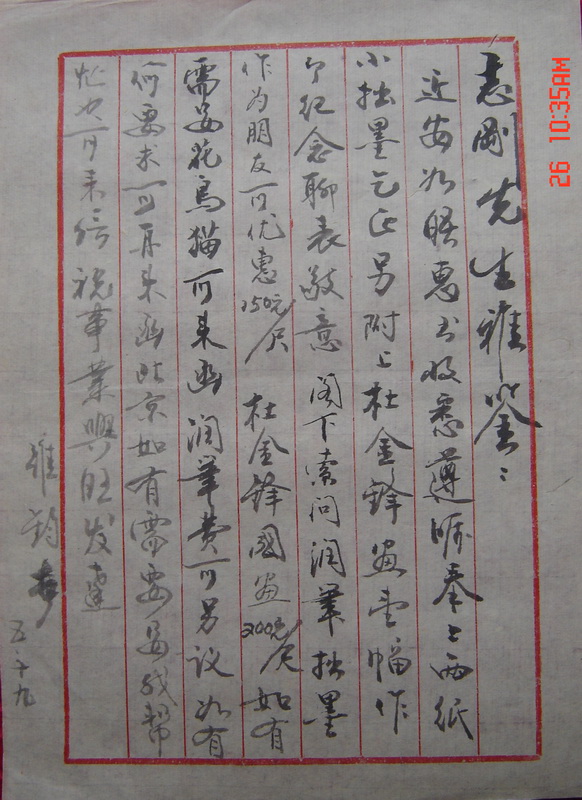 志刚先生雅鉴：
近安如晤惠书收悉遵嘱奉上两纸
小拙墨乞正另附上杜金锋画壹幅作
个纪念聊表敬意 阁下索问润笔拙墨
作为朋友可优惠150元/尺 杜金锋国画200元/尺 如有
需要花鸟猫可来函润笔费可另议如有
何要求可再来函北京如有需要我帮
忙也可来信祝事业兴旺发达
五·十九
26 10:35AM